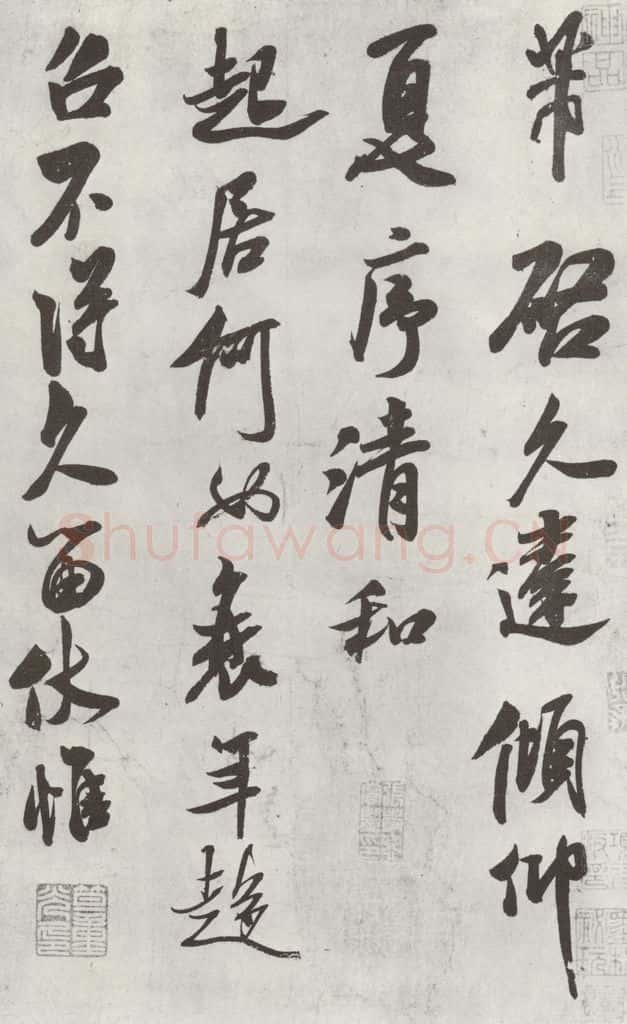 芾啓久違傾仰
夏序清和
起居何如衰年趨
召不得久留伏惟
shufawang.cn